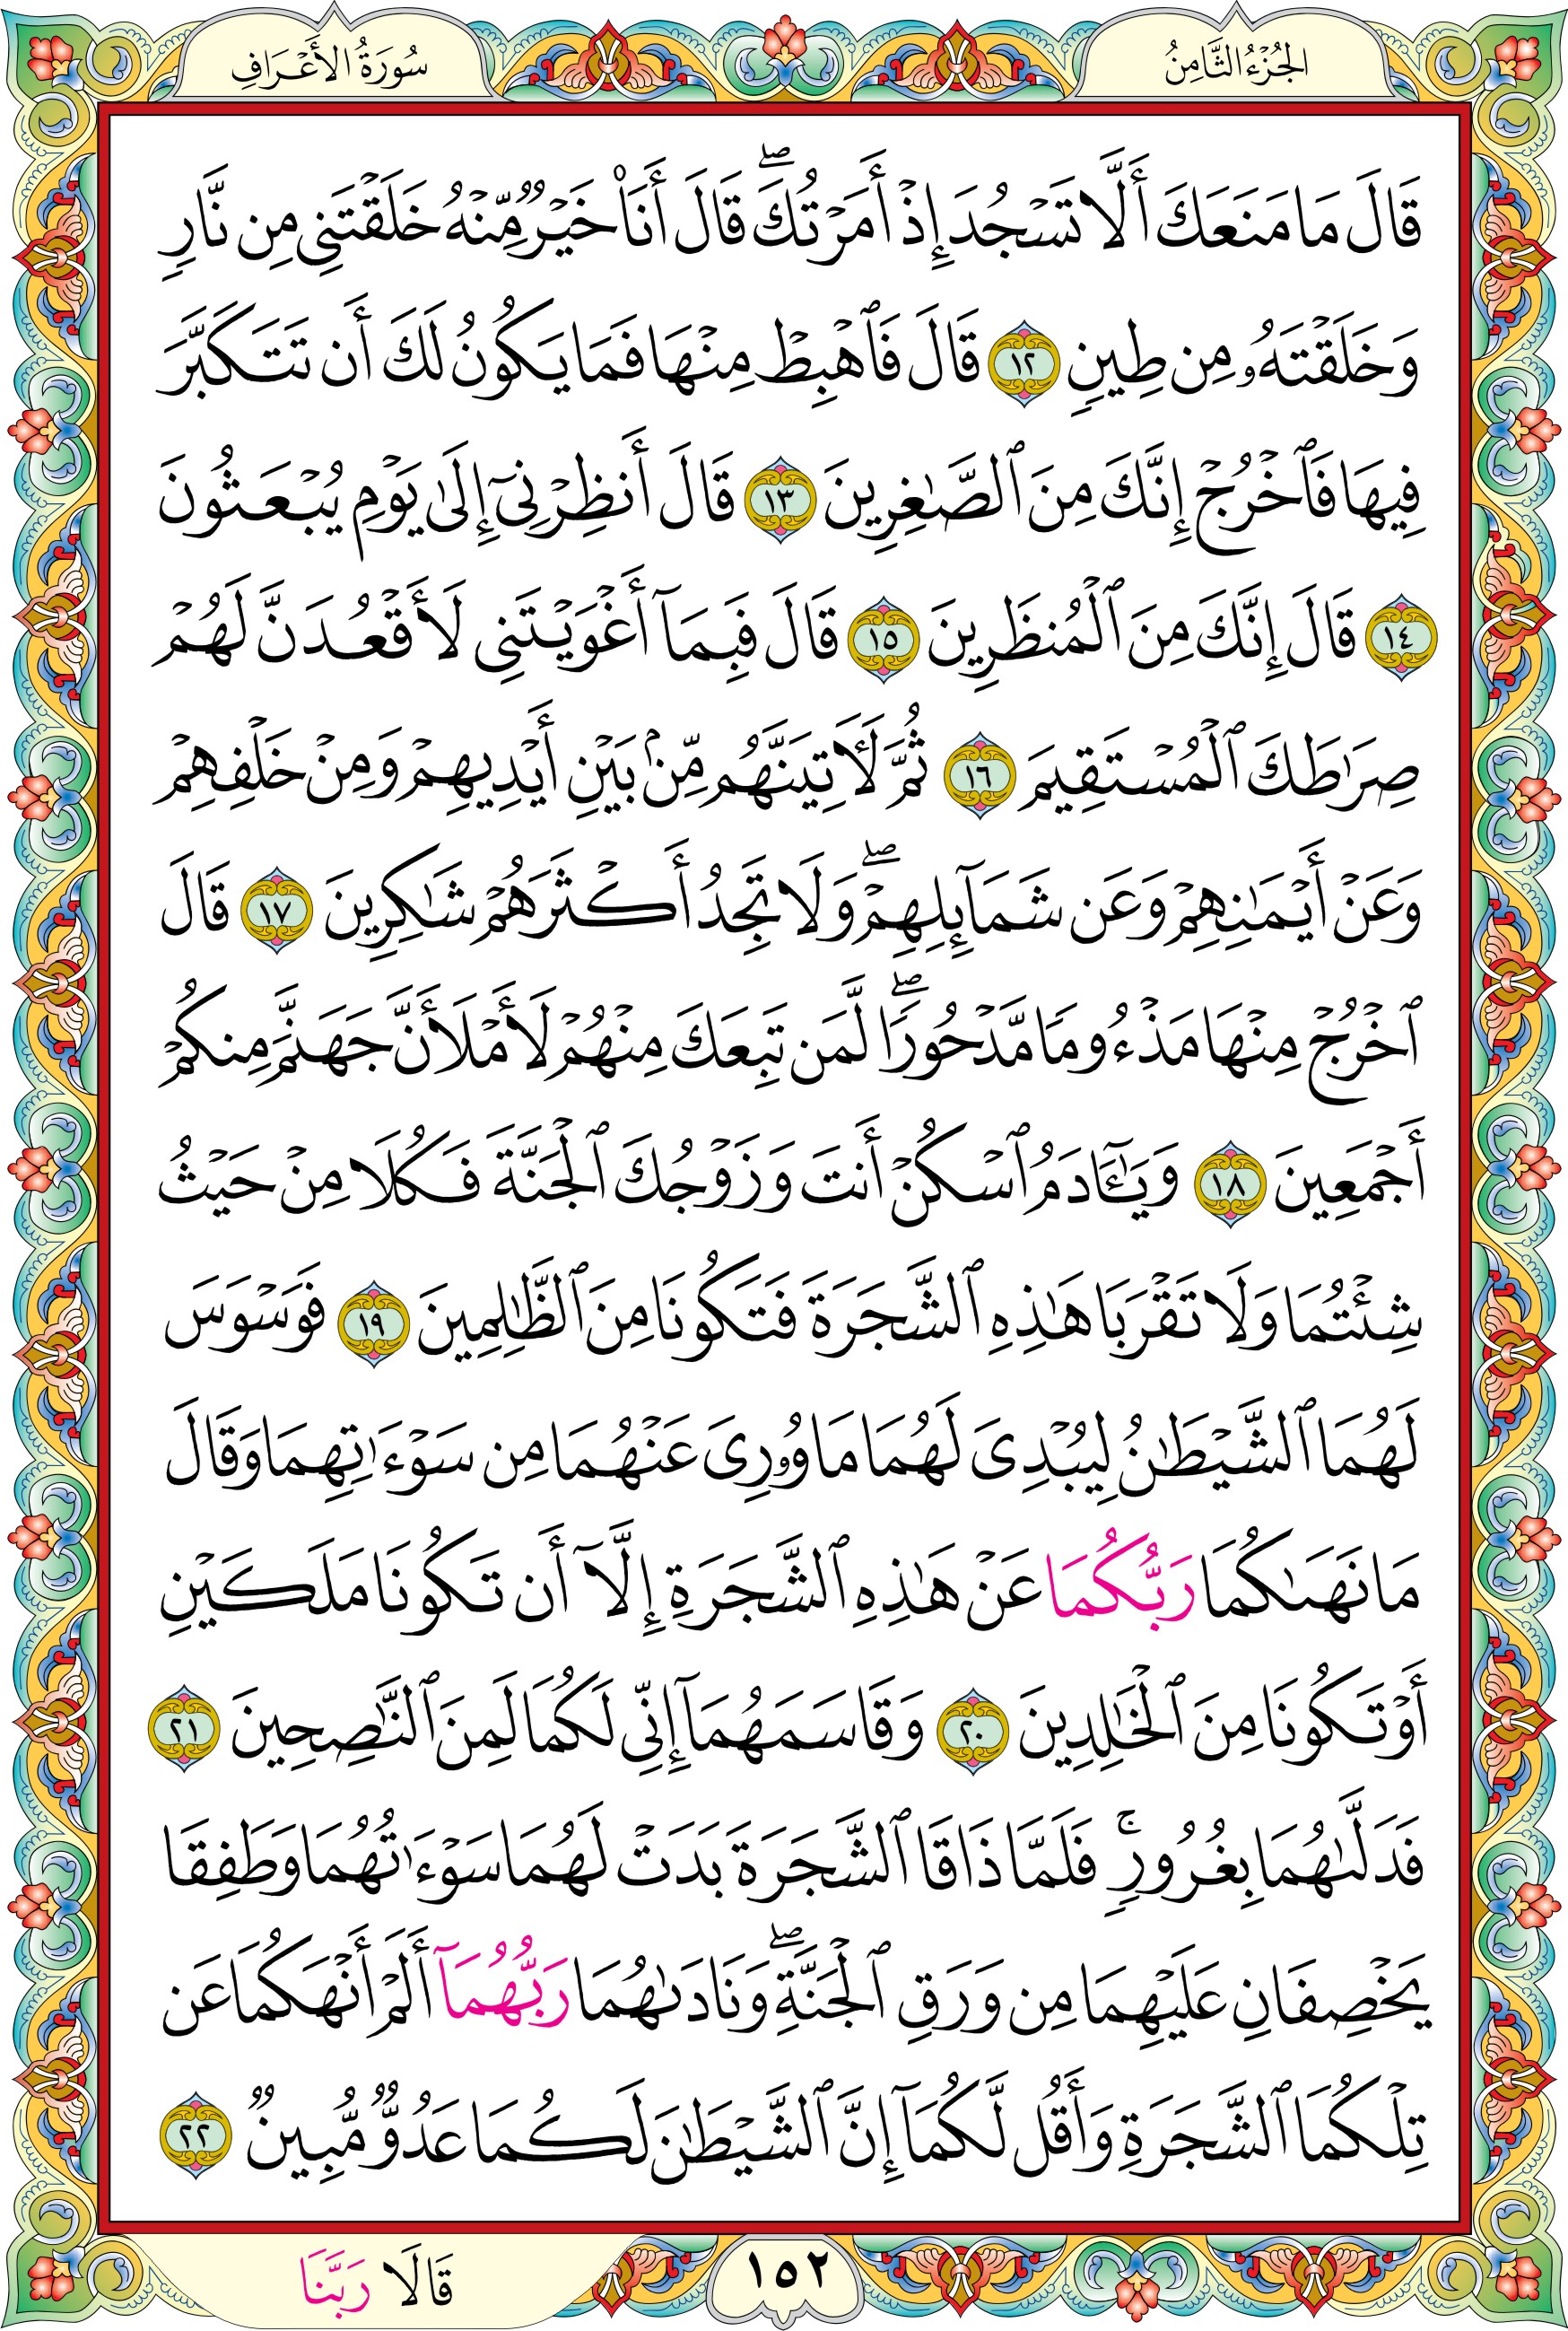 الجُزْءُ الثَّامِنُ
سُورَةُ الأَعْرَافِ
قَالَ مَا مَنَعَكَ أَلَّا تَسْجُدَ إِذْ أَمَرْتُكَۖ قَالَ أَنَا۠ خَيْرٌ مِّنْهُ خَلَقْتَنِى مِن نَّارٍ
وَخَلَقْتَهُۥ مِن طِينٍ ١٢ قَالَ فَٱهْبِطْ مِنْهَا فَمَا يَكُونُ لَكَ أَن تَتَكَبَّرَ
فِيهَا فَٱخْرُجْ إِنَّكَ مِنَ ٱلصَّٰغِرِينَ ١٣ قَالَ أَنظِرْنِىٓ إِلَىٰ يَوْمِ يُبْعَثُونَ
١٤ قَالَ إِنَّكَ مِنَ ٱلْمُنظَرِينَ ١٥ قَالَ فَبِمَآ أَغْوَيْتَنِى لَأَقْعُدَنَّ لَهُمْ
صِرَٰطَكَ ٱلْمُسْتَقِيمَ ١٦ ثُمَّ لَـَٔاتِيَنَّهُم مِّنۢ بَيْنِ أَيْدِيهِمْ وَمِنْ خَلْفِهِمْ
وَعَنْ أَيْمَٰنِهِمْ وَعَن شَمَآئِلِهِمْۖ وَلَا تَجِدُ أَكْثَرَهُمْ شَٰكِرِينَ ١٧ قَالَ
ٱخْرُجْ مِنْهَا مَذْءُومًا مَّدْحُورًاۖ لَّمَن تَبِعَكَ مِنْهُمْ لَأَمْلَأَنَّ جَهَنَّمَ مِنكُمْ
أَجْمَعِينَ ١٨ وَيَٰٓـَٔادَمُ ٱسْكُنْ أَنتَ وَزَوْجُكَ ٱلْجَنَّةَ فَكُلَا مِنْ حَيْثُ
شِئْتُمَا وَلَا تَقْرَبَا هَٰذِهِ ٱلشَّجَرَةَ فَتَكُونَا مِنَ ٱلظَّٰلِمِينَ ١٩ فَوَسْوَسَ
لَهُمَا ٱلشَّيْطَٰنُ لِيُبْدِىَ لَهُمَا مَا وُۥرِىَ عَنْهُمَا مِن سَوْءَٰتِهِمَا وَقَالَ
مَا نَهَىٰكُمَا رَبُّكُمَا عَنْ هَٰذِهِ ٱلشَّجَرَةِ إِلَّآ أَن تَكُونَا مَلَكَيْنِ
أَوْ تَكُونَا مِنَ ٱلْخَٰلِدِينَ ٢٠ وَقَاسَمَهُمَآ إِنِّى لَكُمَا لَمِنَ ٱلنَّٰصِحِينَ ٢١
فَدَلَّىٰهُمَا بِغُرُورٍۚ فَلَمَّا ذَاقَا ٱلشَّجَرَةَ بَدَتْ لَهُمَا سَوْءَٰتُهُمَا وَطَفِقَا
يَخْصِفَانِ عَلَيْهِمَا مِن وَرَقِ ٱلْجَنَّةِۖ وَنَادَىٰهُمَا رَبُّهُمَآ أَلَمْ أَنْهَكُمَا عَن
تِلْكُمَا ٱلشَّجَرَةِ وَأَقُل لَّكُمَآ إِنَّ ٱلشَّيْطَٰنَ لَكُمَا عَدُوٌّ مُّبِينٌ ٢٢
١٥٢
قَالَا رَبَّنَا